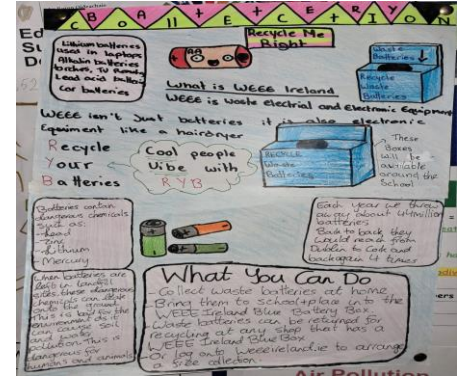 Recycle Me
Right
AA
Lithium batteries
used in laptops
Alkalin batteries
torches, TV
Lead acid
Car batteries
Waste
Batteries
Recycle
Waste
Batteries
What is WEEE Ireland
WEEE is waste electrial and Electronic Equipment
WEEE isn't Just batteries it is also electronic
Equiment like a hairdryer
Recycle
Your
Batteries
Cool people
Vibe with
RYB
RECYCLE
Waste
Batteries
These
Boxes
will be
available
around the
School
Batteries contain
dangerous chemicals
such as:
-Lead
-Zinc
-Lithium
-Mercury
Each year we throw
away about
batteries
Back to back they
would reach from
Dublin to Cork and
back again 4 times
When batteries are
left in landfill
sites, these dangerous
chemicals can leak
onto the ground.
This is bad for the
environment as it
can cause soil
and water
pollution. This is
dangerous for
humans and animals
What You Can Do
- Collect waste batteries at home
- Bring them to school + place into the
WEEE Ireland Blue Battery Box
- Waste batteries can be returned for
recycling at any shop that has a
WEEE Ireland Blue Box
- Or log onto weeeireland.ie to arrange
a free collection.
Air Pollution